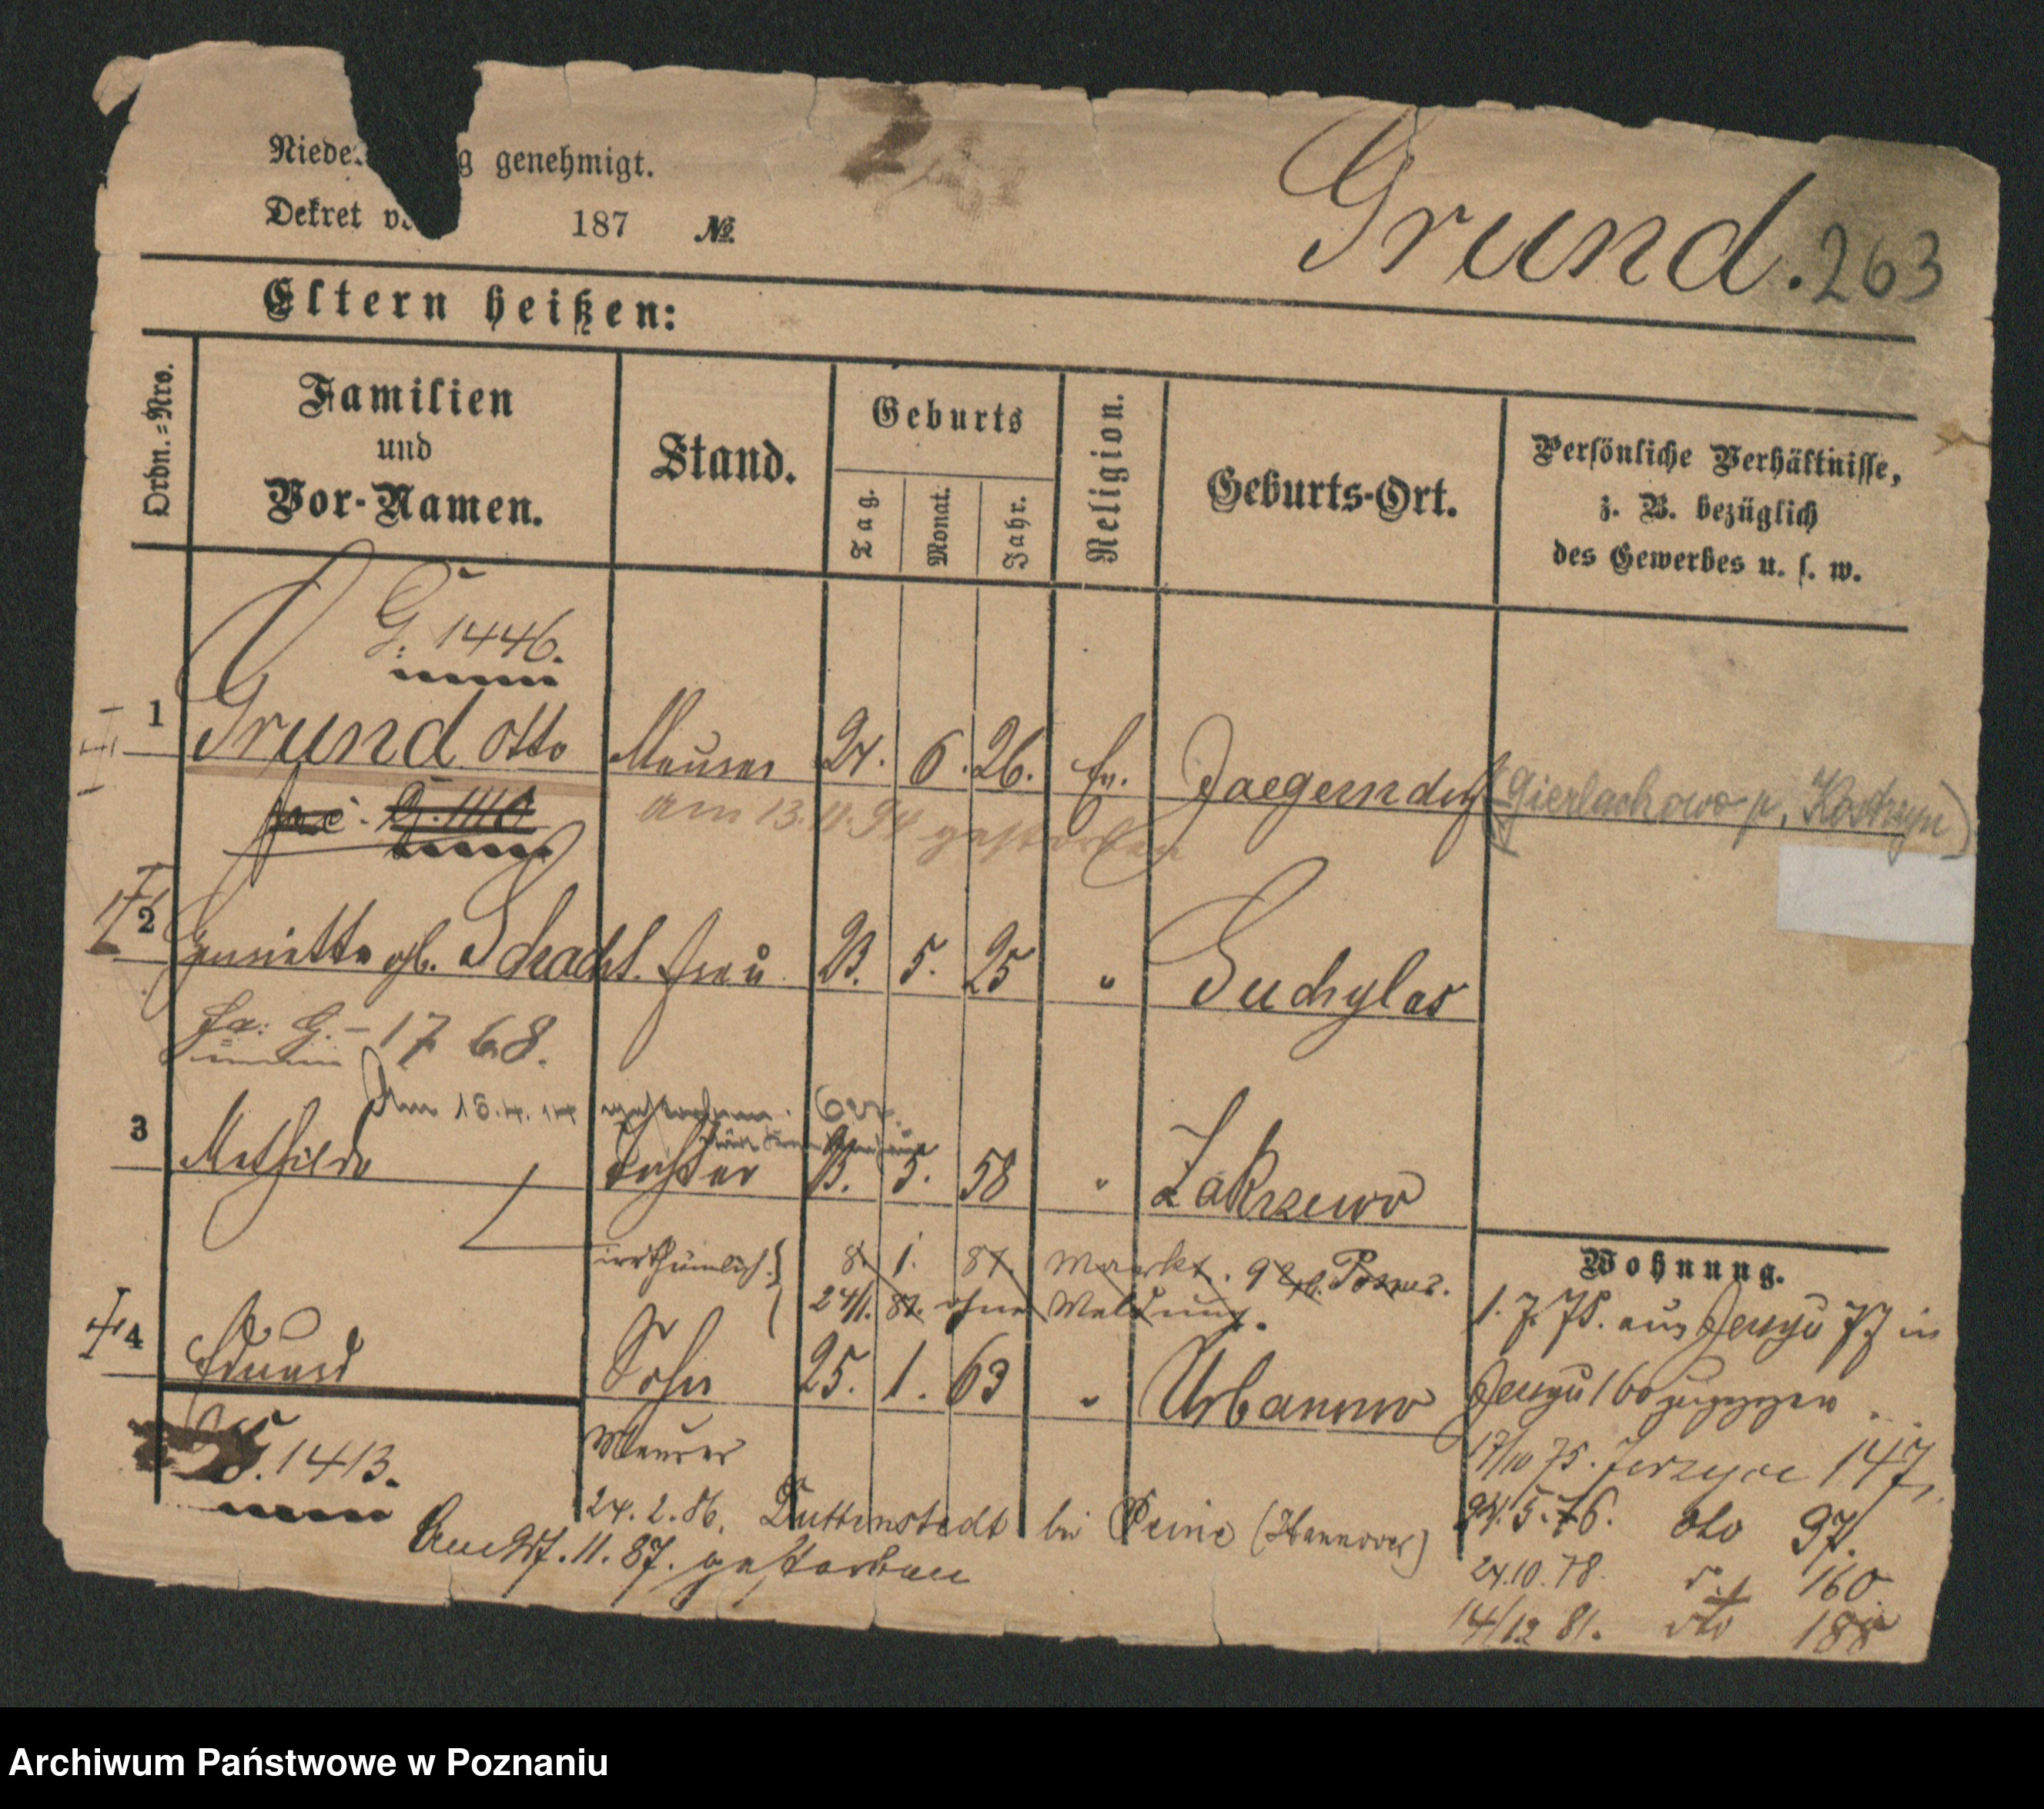 Niede g genehmigt.
Dekret vo 187 №
Grund. 263
Eltern heißen:
Ordn.=Nro.
Familien und Vor-Namen.
Stand.
Geburts
Tag. Monat. Jahr.
Religion.
Geburts-Ort.
Persönliche Verhältnisse,
z. B. bezüglich
des Gewerbes u. s. w.
G. 1446.
1 Grund Otto Maurer 24. 6. 26. Ev. Jaegerndorf (Gierlachowo p. Kostrzyn)
G. 1110
am 13.11.94 gestorben
2 Henriette geb. Schacht. Frau 23. 5. 25 " Suchylas
Fa: G. - 1768.
Am 15.4.14 gestorben.
3 Mathilde Tochter 13. 5. 58 " Zakrzewo
irrthümlich 8. 1. 87. Markt. 92 Posen.
24/1. 87. ohne Meldung.
4 Eduard Sohn 25. 1. 63 " Urbanowo
G. 1413.
Maurer
24. 2. 86. Duttenstedt bei Peine (Hannover)
Am 27. 11. 87. gestorben
Wohnung.
1. 7. 75. aus Jersyce 77 in
Jersyce 160 zugezogen
17/10 75. Jerzyce 147,
24. 5. 76. dto 97.
24. 10. 78. 160
14/12 81. dto 188
Archiwum Państwowe w Poznaniu